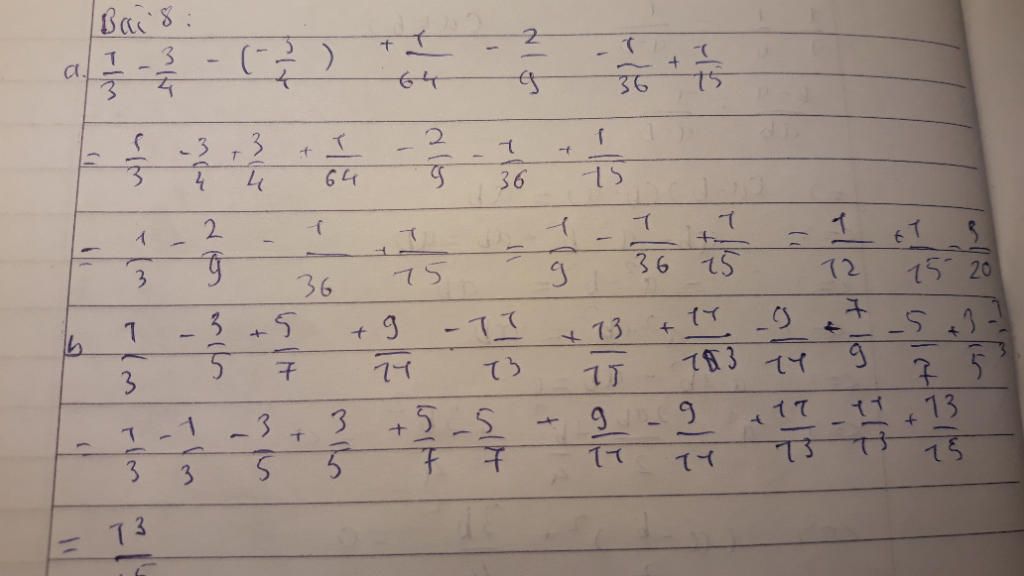 Bài 8:
a. 1/3 - 3/4 - (-3/4) + 1/64 - 2/9 - 1/36 + 1/15
= 1/3 - 3/4 + 3/4 + 1/64 - 2/9 - 1/36 + 1/15
= 1/3 - 2/9 - 1/36 + 1/15 = 1/9 - 1/36 + 1/15 = 1/12 + 1/15 = 3/20
b 1/3 - 3/5 + 5/7 + 9/11 - 11/13 + 13/15 + 11/13 - 9/11 + 7/9 - 5/7 + 3/5 - 1/3
= 1/3 - 1/3 - 3/5 + 3/5 + 5/7 - 5/7 + 9/11 - 9/11 + 11/13 - 11/13 + 13/15
= 13/15